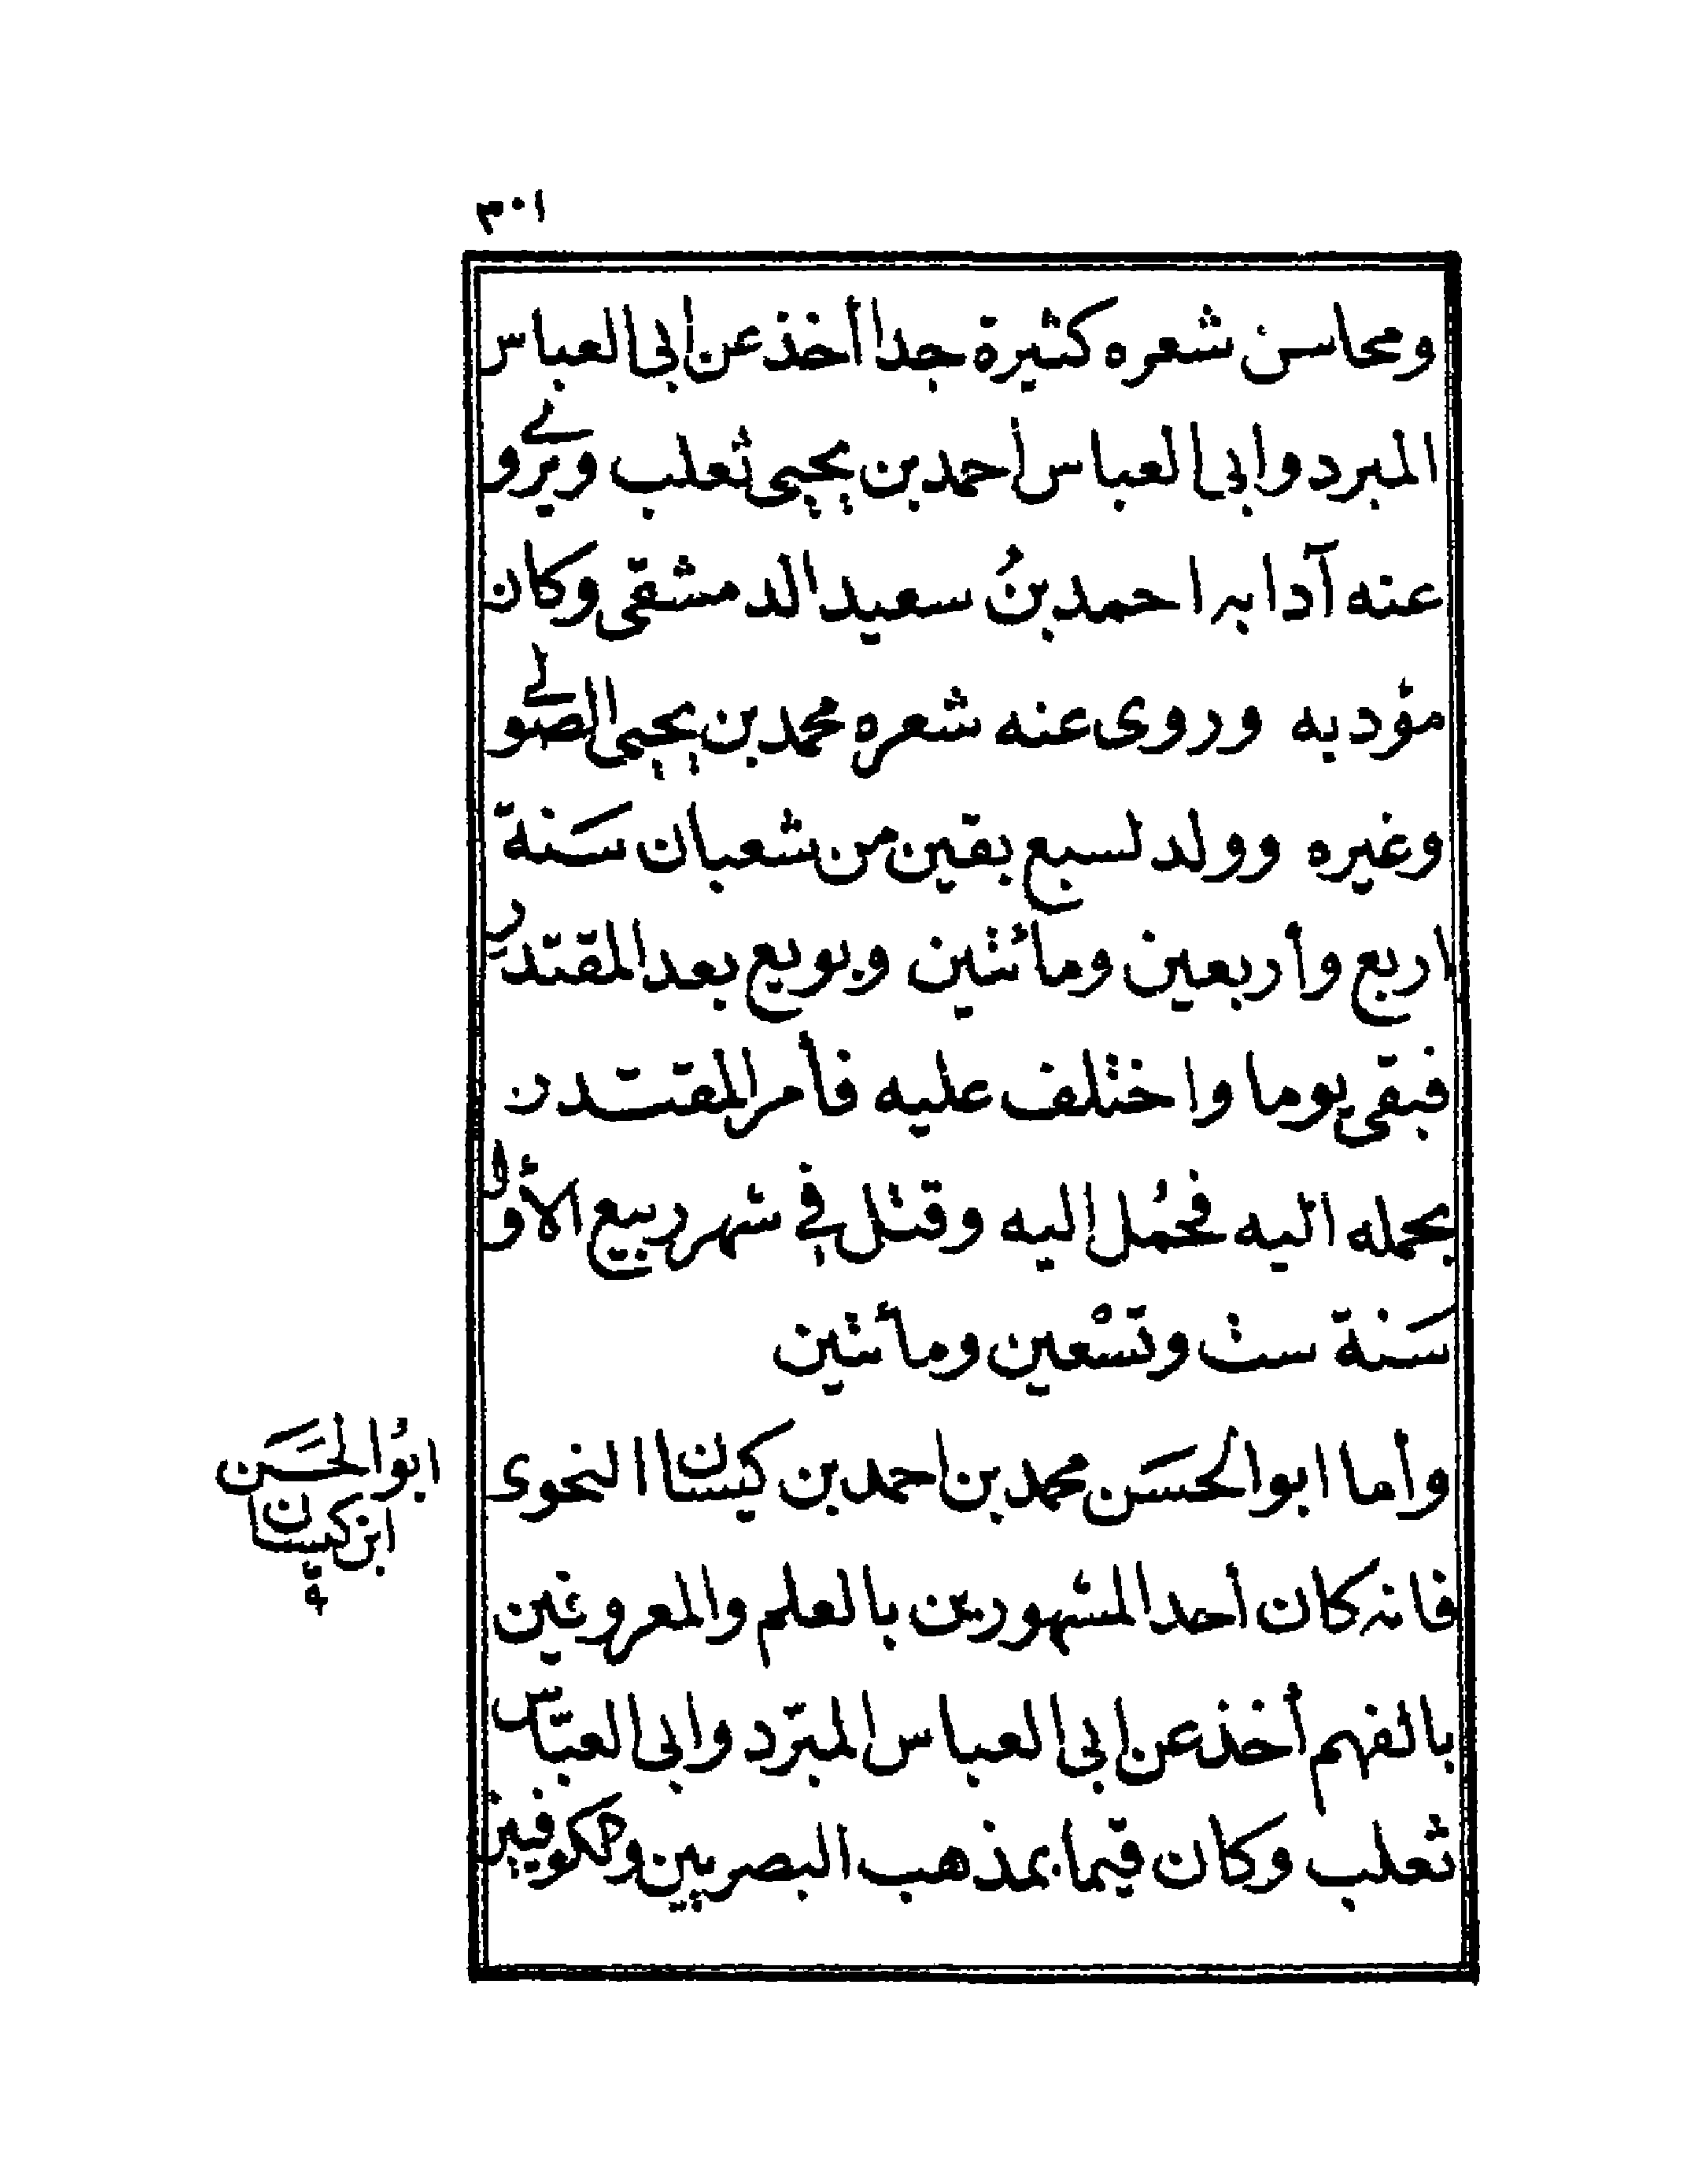 ٣٠١
ومحاسن شعره كثيرة جدا أخذ عن ابى العباس
المبرد وابى العباس أحمد بن يحيى ثعلب ويروى
عنه آدابه احمد بنُ سعيد الدمشقى وكان
مؤدبه وروى عنه شعره محمد بن يحيى الصولى
وغيره وولد لسبع بقين من شعبان سَنة
اربع وأربعين ومائتين وبويع بعد المقتدر
فبقى يوما واختلف عليه فأمر المقتدر
بحمله اليه فحُمل اليه وقتل فى شهر ربيع الأول
سَنة ست وتسْعين ومائتين
وأما ابو الحسَن محمد بن احمد بن كيسان النحوى
ابوُ الحسَن
ابن كيسان
فانه كان أحد المشهورين بالعلم والمعروفين
بالفهم أخذ عن ابى العباس المبرّد وابى العبّاس
ثعلب وكان قيّما بمذهب البصريين والكوفيين